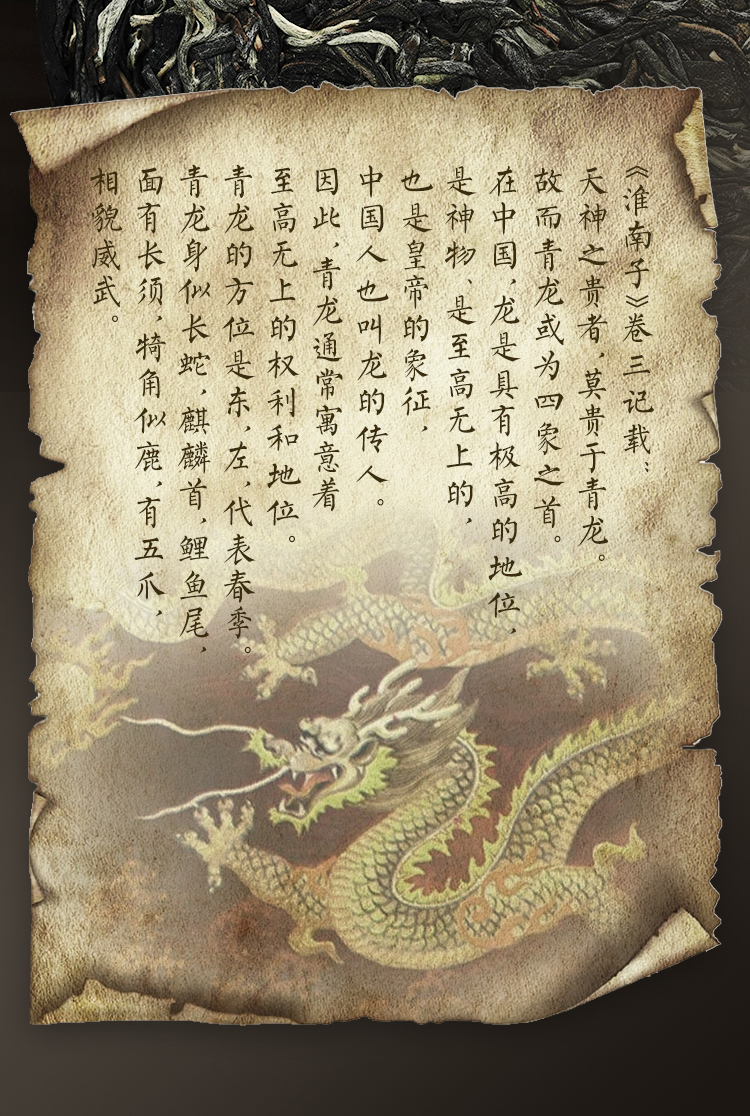 《淮南子》卷三记载：
天神之贵者，莫贵于青龙。
故而青龙或为四象之首。
在中国，龙是具有极高的地位，
是神物、是至高无上的，
也是皇帝的象征，
中国人也叫龙的传人。
因此，青龙通常寓意着
至高无上的权利和地位。
青龙的方位是东，左，代表春季。
青龙身似长蛇，麒麟首，鲤鱼尾，
面有长须，犄角似鹿，有五爪，
相貌威武。